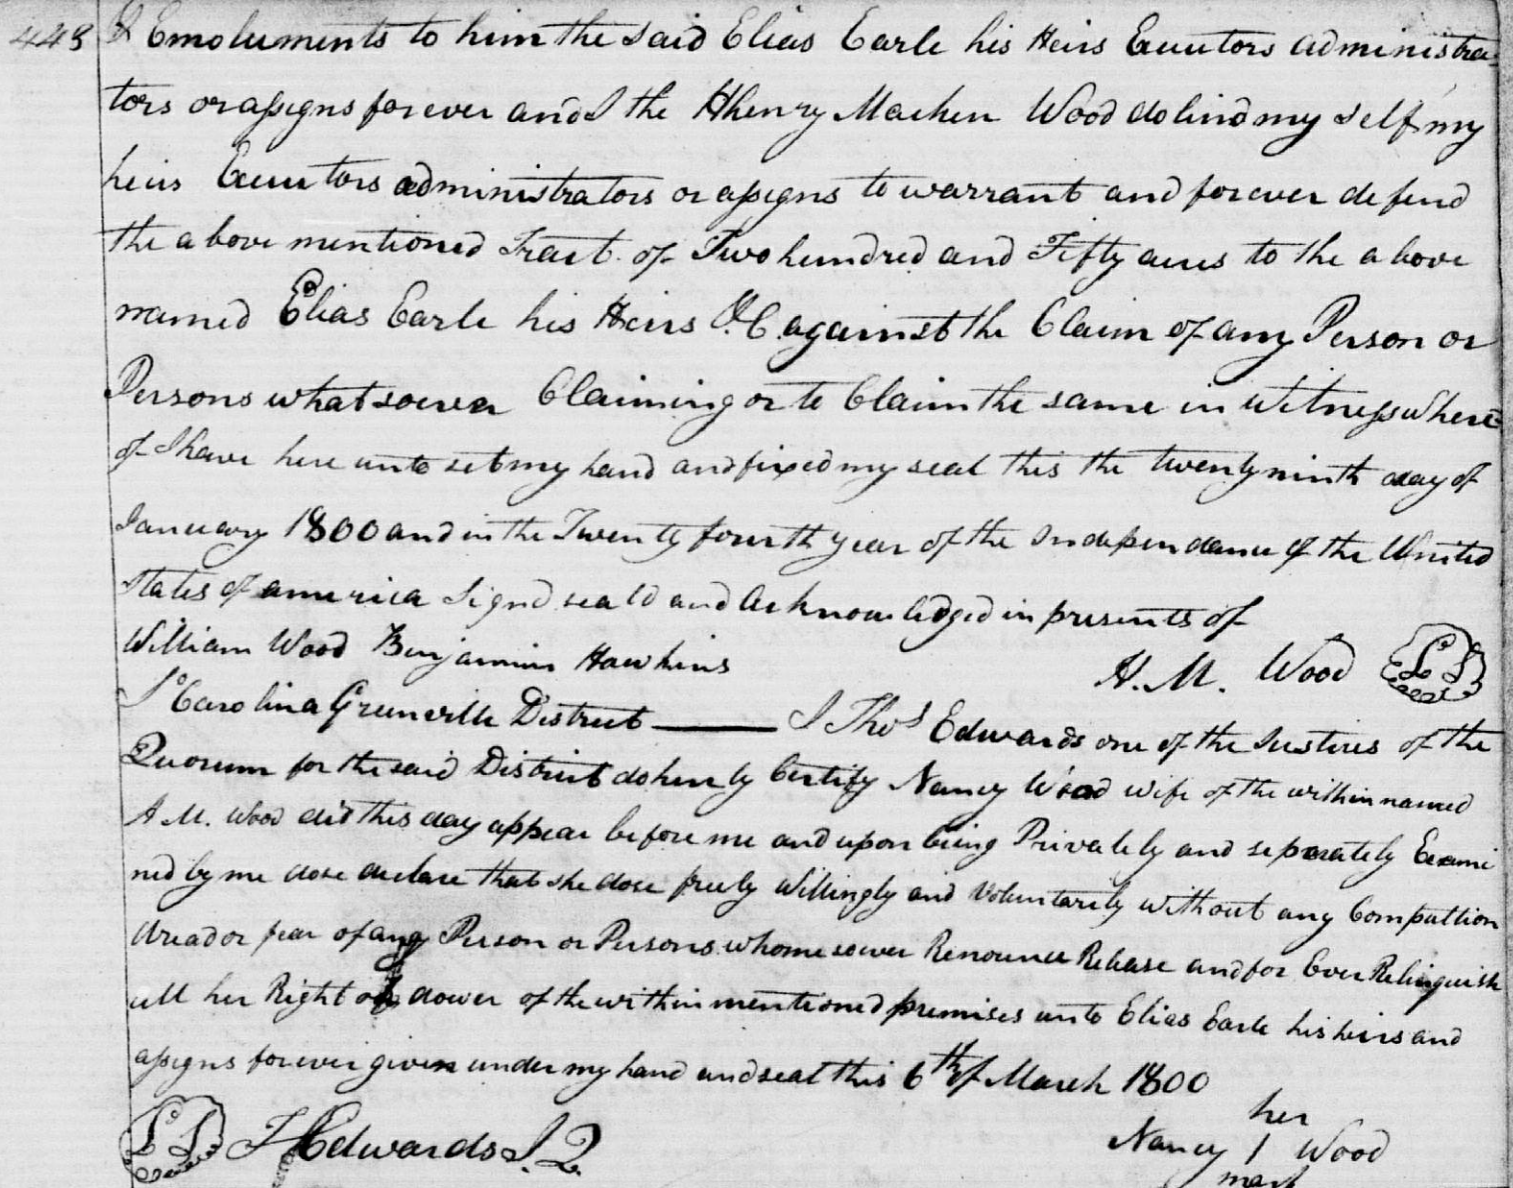 443 & Emoluments to him the said Elias Earle his Heirs Executors administra-
tors or assigns forever and I the Hhenry Machen Wood do bind my self my
heirs Executors administrators or assigns to warrant and forever defend
the above mentioned Tract of Two hundred and Fifty acres to the above
named Elias Earle his Heirs &C. against the Claim of any Person or
Persons whatsoever Claiming or to Claim the same in Witness where
of I have here unto set my hand and fixed my seal this the twenty ninth day of
January 1800 and in the Twenty fourth year of the Independance of the United
States of america Signd seald and acknowledged in presents of
William Wood Benjamin Hawkins
H. M. Wood LS
So Carolina Greenville District — I Thos Edwards one of the Justices of the
Quorum for the said District do hereby Certify Nancy Wood wife of the within named
H M. Wood did this day appear before me and upon being Privately and seperately Exami
ned by me dose declare that she dose freely Willingly and Voluntarily without any Compultion
dread or fear of any Person or Persons whomesoever Renounce Release and for Ever Relinquish
all her Right of dower of the within mentioned premises unto Elias Earle his heirs and
assigns forever given under my hand and seal this 6th of March 1800
LS T Edwards J. Q
her
Nancy 1 Wood
mark